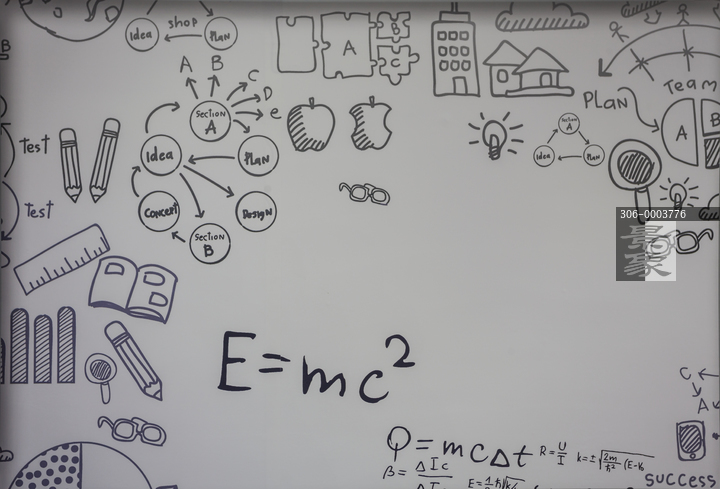 shop
Idea
Plan
A
B
C
D
e
Section
A
Idea
Plan
Concept
Design
Section
B
test
test
B
A
B
C
Plan
Team
A
B
Section
A
Idea
Plan
306-0003776
E=mc²
Q=mcΔt
R=U/I
β=ΔIc
C
A
success